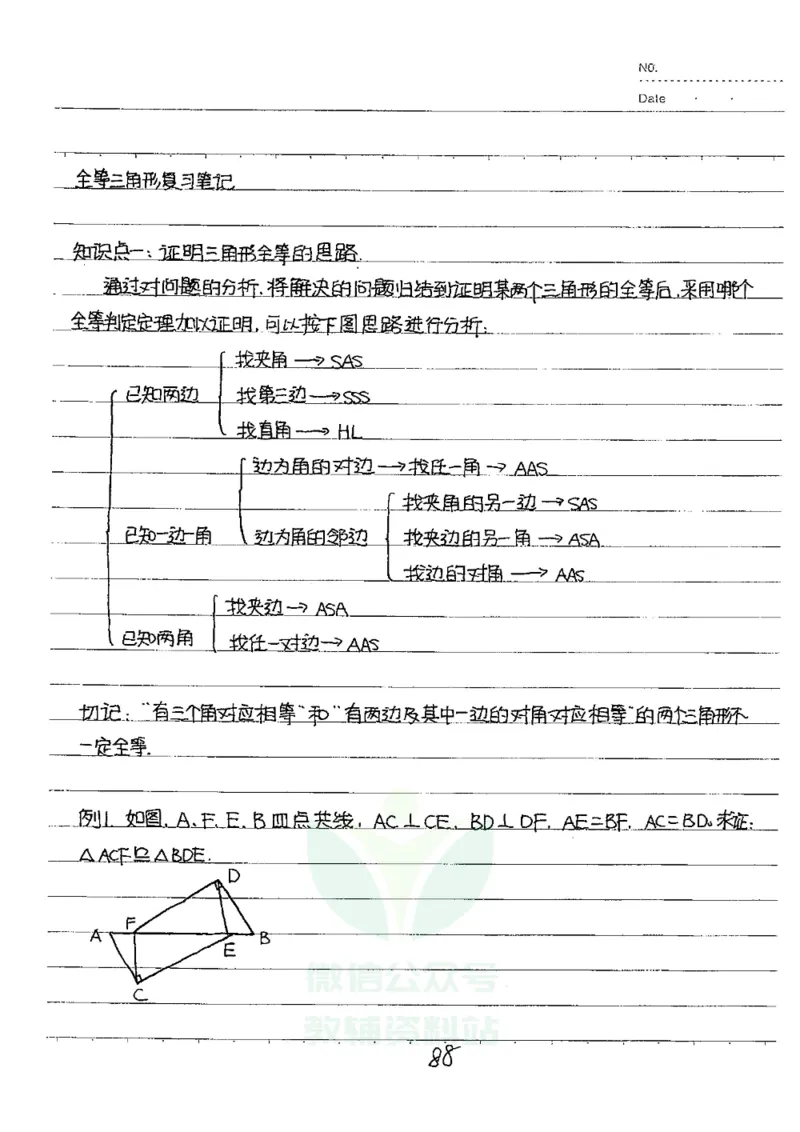 NO.
Date
全等三角形复习笔记
知识点一:证明三角形全等的思路.
通过对问题的分析,将解决的问题归结到证明某两个三角形的全等后,采用哪个
全等判定定理加以证明,可以按下图思路进行分析:
找夹角→SAS
已知两边 找第三边→SSS
找直角→HL
边为角的对边→找任一角→AAS
找夹角的另一边→SAS
已知一边一角 边为角的邻边 找夹边的另一角→ASA
找边的对角→AAS
找夹边→ASA
已知两角 找任一对边→AAS
切记:"有三个角对应相等"和"有两边及其中一边的对角对应相等"的两个三角形不
一定全等.
例1. 如图,A、F、E、B四点共线,AC⊥CE、BD⊥DF、AE=BF、AC=BD。求证:
△ACF≌△BDE.
D
F
A
E
B
C
微信公众号
教辅资料站
88